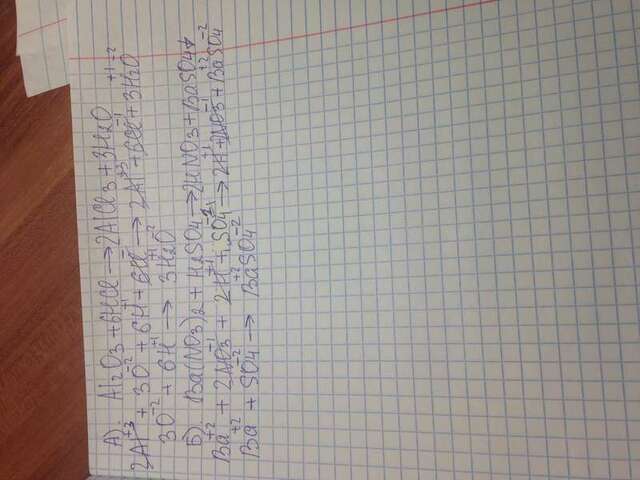 А) Al₂O₃ + 6HCl → 2AlCl₃ + 3H₂O
2Al⁺³ + 3O⁻² + 6H⁺¹ + 6Cl⁻ → 2Al⁺³ + 6Cl⁻¹ + 3H₂⁺¹O⁻²
3O⁻² + 6H⁺¹ → 3H₂⁺¹O⁻²
Б) Ba(NO₃)₂ + H₂SO₄ → 2HNO₃ + BaSO₄↓
Ba⁺² + 2NO₃⁻¹ + 2H⁺¹ + SO₄⁻² → 2H⁺¹ + 2NO₃⁻¹ + Ba⁺²SO₄⁻²
Ba⁺² + SO₄⁻² → Ba⁺²SO₄⁻²